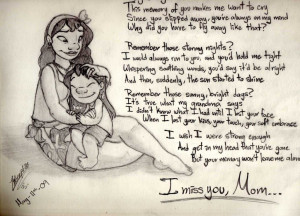 This memory of you makes me want to cry
Since you slipped away, you're always on my mind
Why did you have to fly away like that?
Remember those stormy nights?
I would always run to you, and you'd hold me tight
Whispering soothing words, you'd say it'd be alright
And then, suddenly, the sun started to shine
Remember those sunny, bright days?
It's true what my grandma says
I didn't know what I had until I lost your face
When I lost your kiss, your touch, your soft embrace
I wish I were strong enough
And get in my head that you're gone
But your memory won't leave me alone
I miss you, Mom...